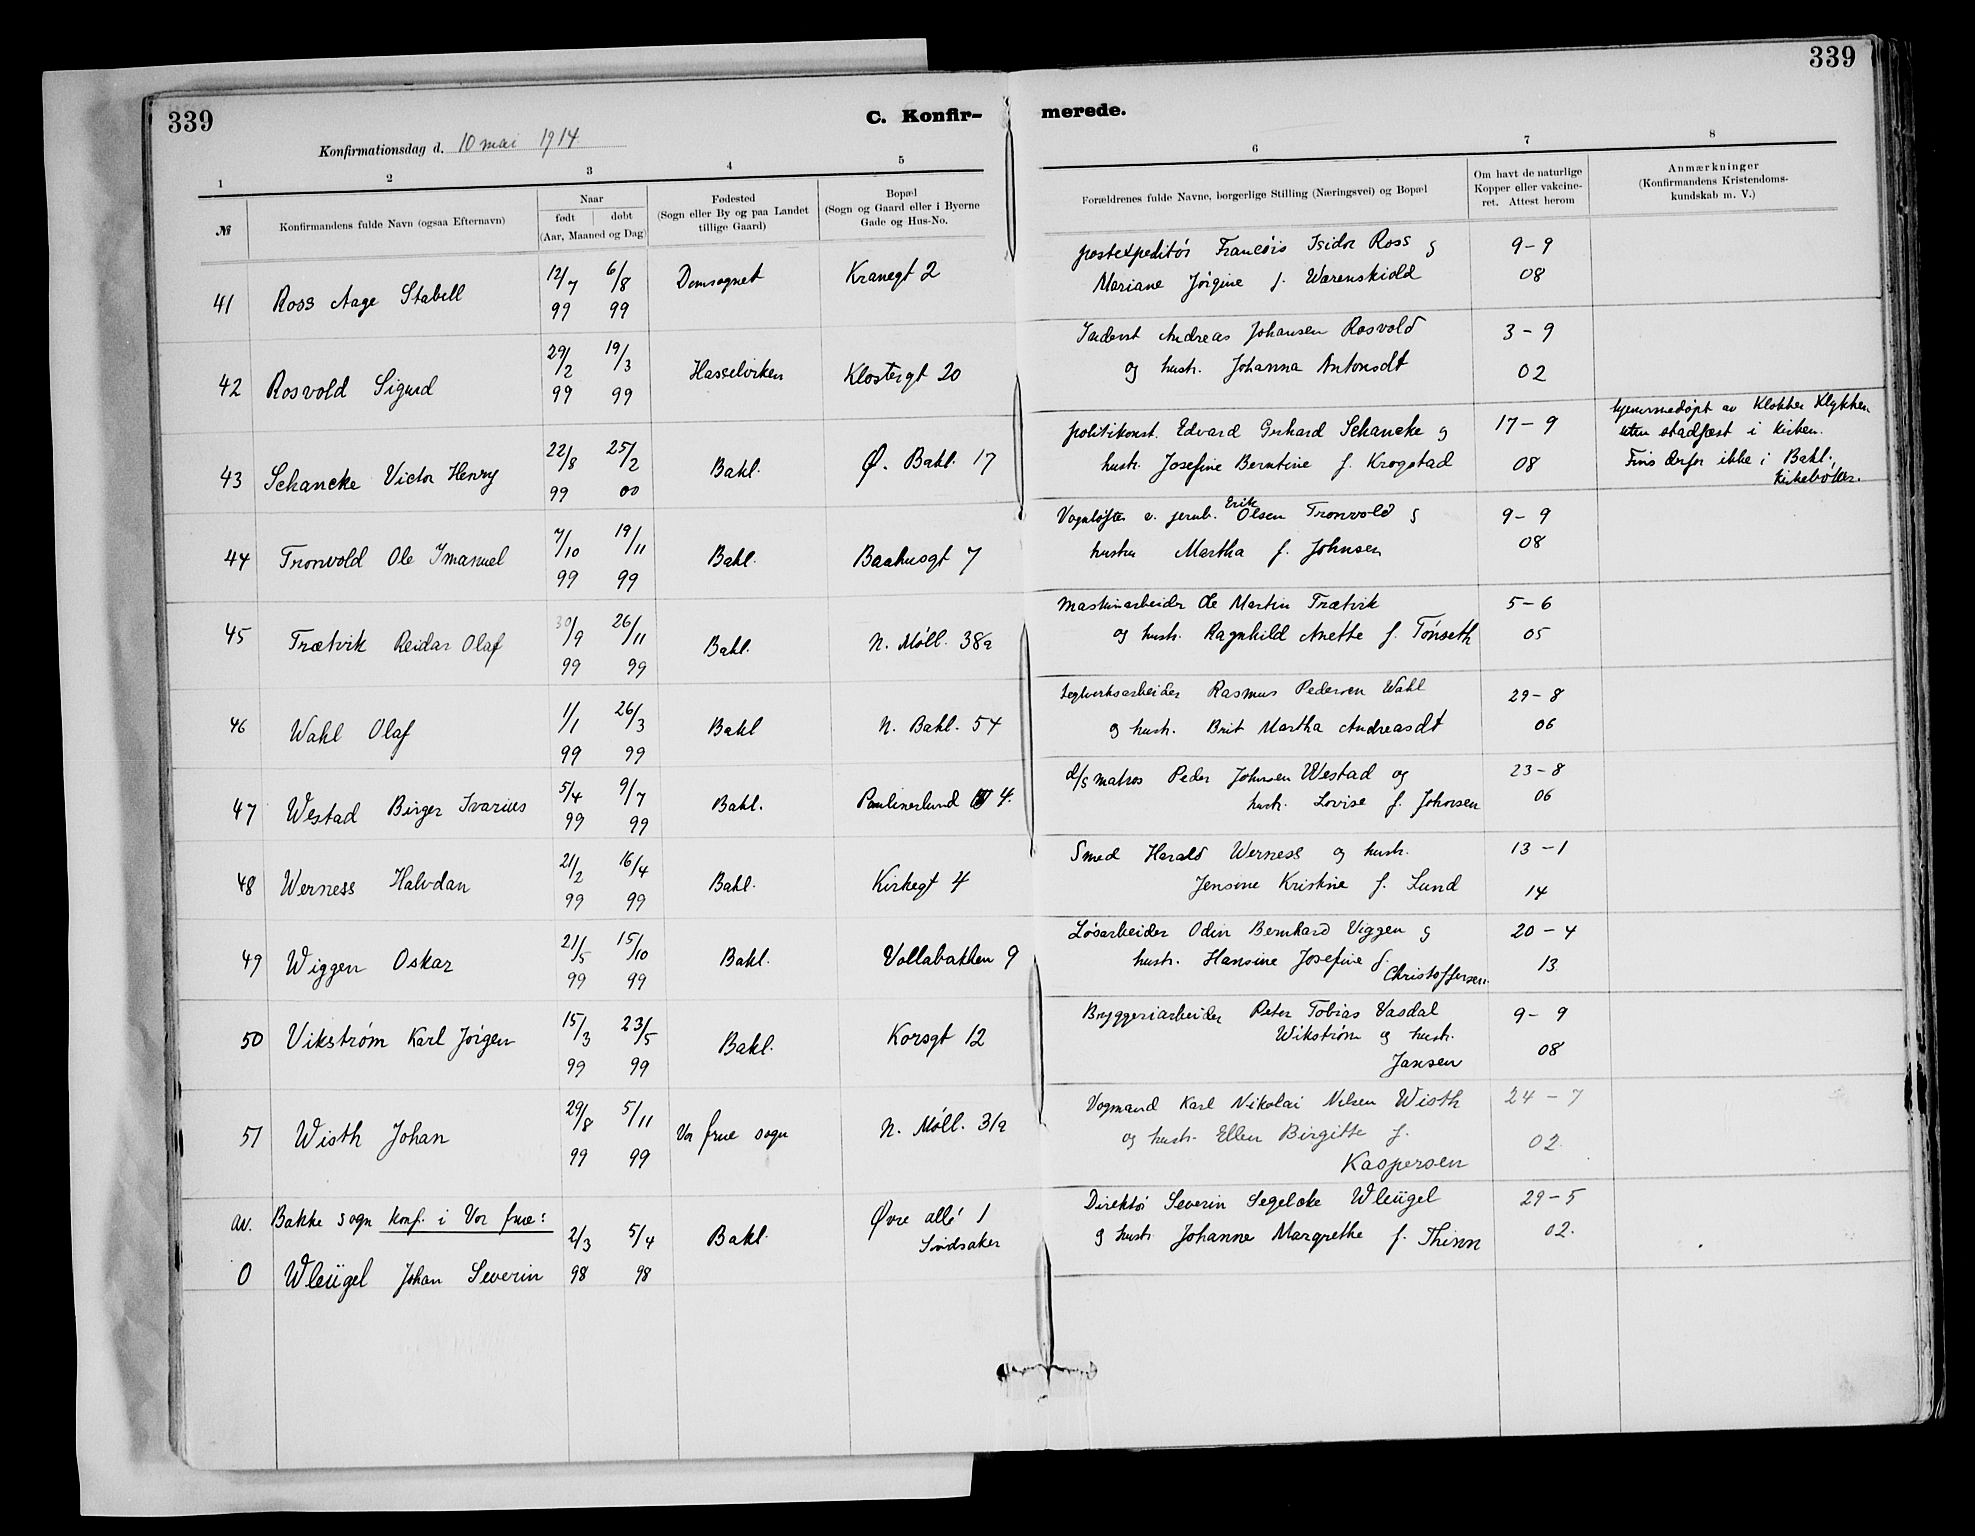 339
339
C. Konfir-
merede.
Konfirmationsdag d. 10 mai 1914.
1
2
3
4
5
6
7
8
№
Konfirmandens fulde Navn (ogsaa Efternavn)
Naar
født
døbt
(Aar, Maaned og Dag)
Fødested
(Sogn eller By og paa Landet
tillige Gaard)
Bopæl
(Sogn og Gaard eller i Byerne
Gade og Hus-No.
Forældrenes fulde Navne, borgerlige Stilling (Næringsvei) og Bopæl
Om havt de naturlige
Kopper eller vakcine-
ret. Attest herom
Anmærkninger
(Konfirmandens Kristendoms-
kundskab m. V.)
12/7 6/8 Domsognet Kranegt 2 postexpeditør Francois Isidor Ross g 9-9
41 Ross Aage Stabell 99 99 Mariane Jørgine f. Warenskiold 08
29/2 19/3 Hasselviken Klostergt 20 Andreas Johansen Rosvold 3-9
42 Rosvold Sigurd 99 99 og hustr. Johanna Antonsdt 02
22/8 25/2 Bakl. Ø. Bakl. 17 politikonst. Edvard Gerhard Schancke g 17-9
hjemmedøpt av Klokker Klykken
uten stadfæst i kirken.
43 Schancke Victor Henry 99 00 hustr. Josefine Berntine f. Krogstad 08
Fins derfor ikke i Bakl.
kirkebøker.
7/10 19/11 Bakl. Baahusgt 7 Vognløfter v. jernb. Erik Olsen Tronvold g 9-9
44 Tronvold Ole Imanuel 99 99 hustru Martha f. Johnsen 08
30/9 26/11 Bakl. N. Møll. 38a Maskinarbeider Ole Martin Trætvik 5-6
45 Trætvik Reidar Olaf 99 99 og hustr. Ragnhild Anette f. Tønseth 05
1/1 26/3 Bakl N. Bakl. 54 teglverksarbeider Rasmus Pedersen Wahl 29-8
46 Wahl Olaf 99 99 g hustr. Brit Martha Andreasdt 06
5/4 9/7 Bakl. Paulinerlund 4. d/s matros Peder Johnsen Westad og 23-8
47 Westad Birger Ivarius 99 99 hustr. Lovise f. Johnsen 06
21/2 16/4 Bakl. Kirkegt 4 Smed Harald Werness og hustr. 13-1
48 Werness Halvdan 99 99 Jensine Kristine f. Lund 14
21/5 15/10 Bakl. Vollabakken 9 Løsarbeider Odin Bernhard Viggen g 20-4
49 Wiggen Oskar 99 99 hustr. Hansine Josefine f. Christoffersen. 13
15/3 23/5 Bakl. Korsgt 12 Bryggeriarbeider Peter Tobias Vasdal 9-9
50 Vikstrøm Karl Jørgen Wikstrøm g hustr.
99 99 Jansen 08
29/8 5/11 Vor frue sogn N. Møll. 31a Vogmand Karl Nikolai Nilsen Wisth 24-7
51 Wisth Johan og hustr. Ellen Birgitte f. 02.
99 99 Kaspersen
av. Bakke sogn konf. i Vor frue: 2/3 5/4 Bakl. Øvre allé 1 Direktør Severin Segelcke Wleügel 29-5
Sindsaker g hustr. Johanne Margrethe f. Thinn 02.
0 Wleügel Johan Severin 98 98